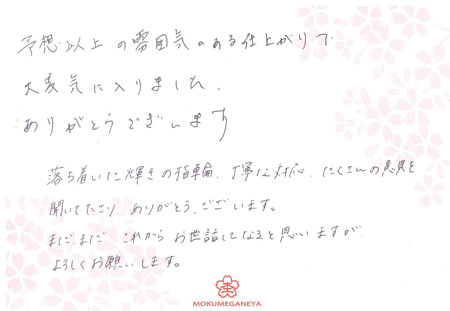 予想以上の雰囲気のある仕上がりで
大変気に入りました。
ありがとうございます
落ち着いた輝きの指輪、丁寧な対応、たくさんの意見を
聞いて下さり、ありがとうございます。
まだまだ これから お世話になると思いますが
よろしくお願いします。
MOKUMEGANEYA